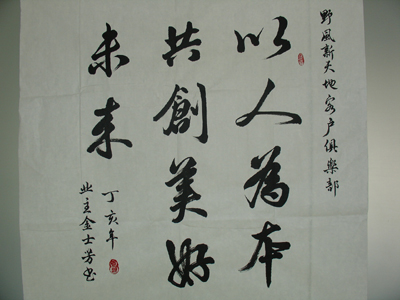 野風新天地客户俱樂部
以人為本
共創美好
未来
丁亥年
业主金士芳书